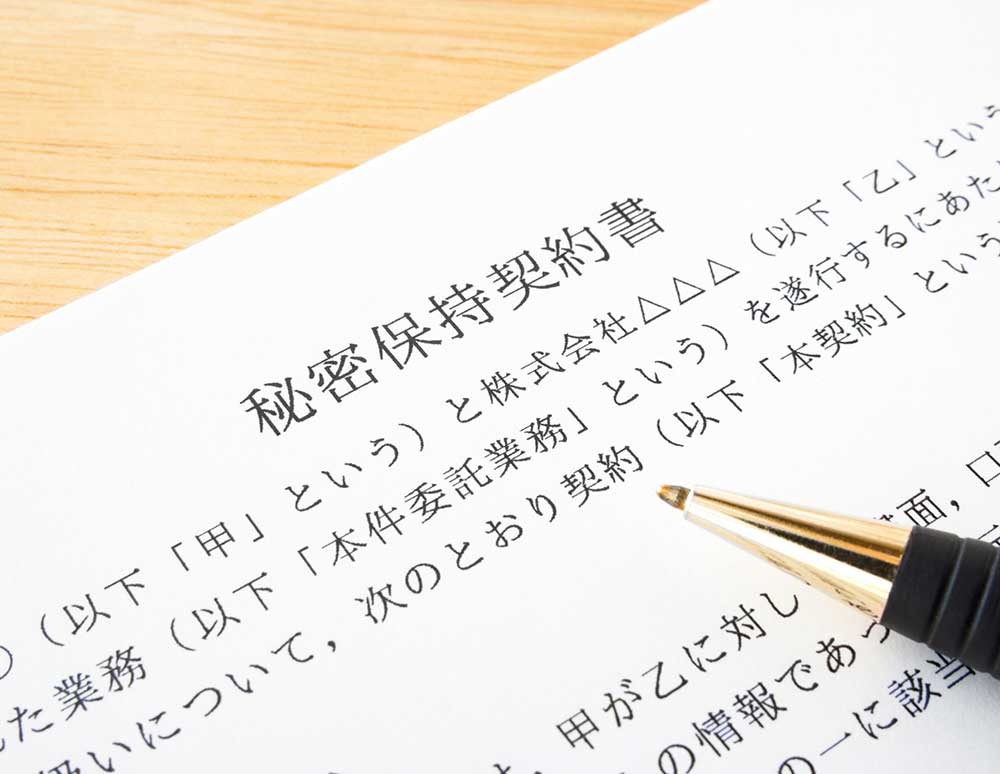 秘密保持契約書
（以下「甲」という）と株式会社△△△（以下「乙」という
た業務（以下「本件委託業務」という）を遂行するにあた
扱いについて，次のとおり契約（以下「本契約」という
面，口
甲が乙に対し
の情報であっ
の一に該当